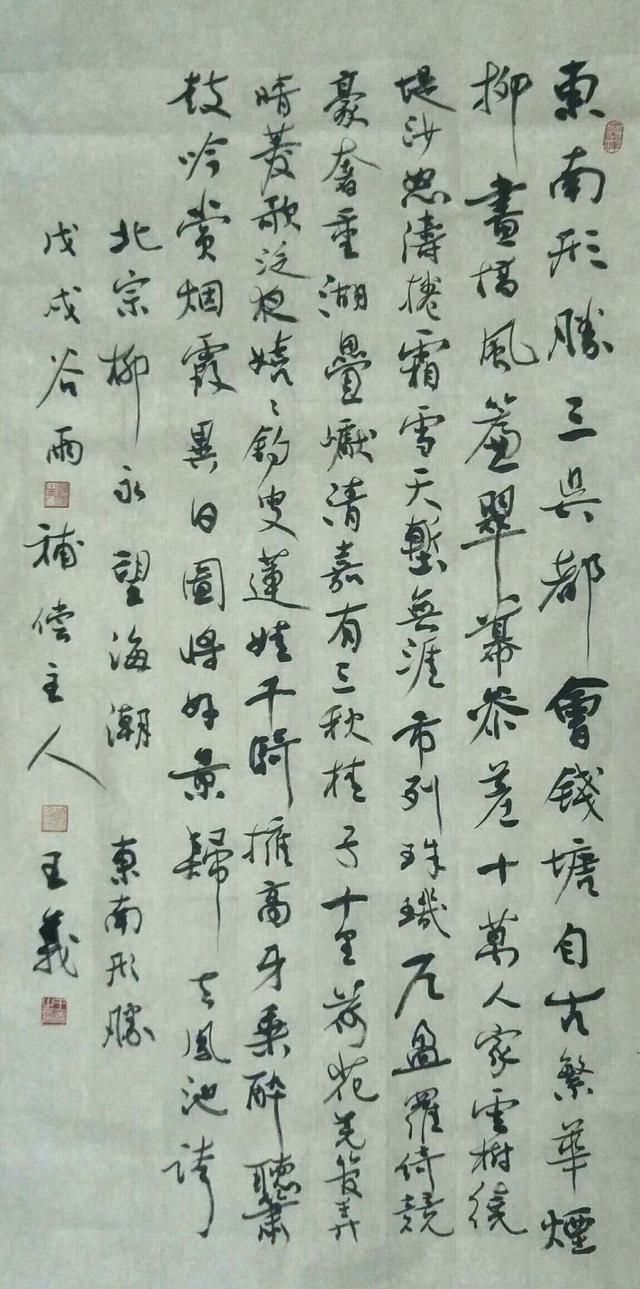 東南形勝三吳都會錢塘自古繁華煙
柳畫橋風簾翠幕參差十萬人家雲樹繞
堤沙怒濤捲霜雪天塹無涯市列珠璣戶盈羅綺競
豪奢重湖疊巘清嘉有三秋桂子十里荷花羌管弄
晴菱歌泛夜嬉々釣叟蓮娃千騎擁高牙乘醉聽簫
鼓吟賞烟霞異日圖將好景歸去鳳池誇
北宗柳永望海潮 東南形勝
戊戌谷雨 補偿主人 王義